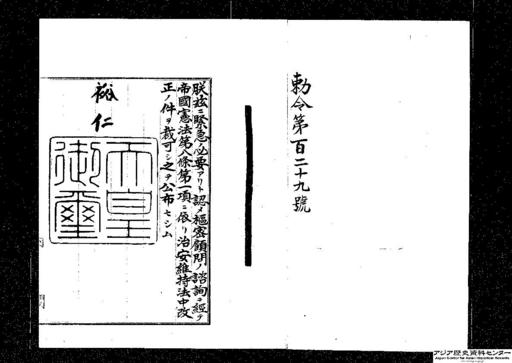 勅令第百二十九號
朕玆ニ緊急ノ必要アリト認メ樞密顧問ノ諮詢ヲ經テ
帝國憲法第八條第一項ニ依リ治安維持法中改
正ノ件ヲ裁可シ之ヲ公布セシム
裕仁
天皇
御璽
アジア歴史資料センター
Japan Center for Asian Historical Records